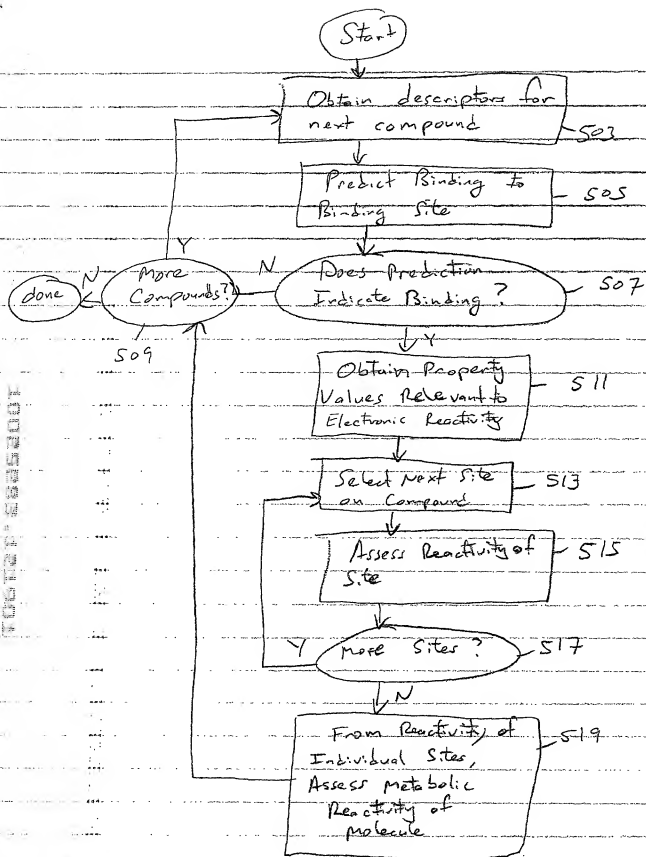 Start
Obtain descriptors for
next compound
503
Predict Binding to
Binding Site
505
Does Prediction
Indicate Binding?
507
N
Y
More
Compounds?
509
Y
N
done
Obtain Property
Values Relevant to
Electronic Reactivity
511
Select Next Site
on Compound
513
Assess Reactivity of
Site
515
More Sites?
517
Y
N
From Reactivity of
Individual Sites,
Assess Metabolic
Reactivity of
Molecule
519